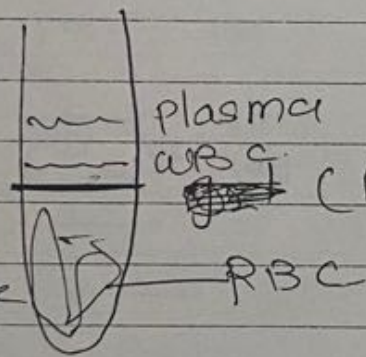 plasma
WBC
(
RBC